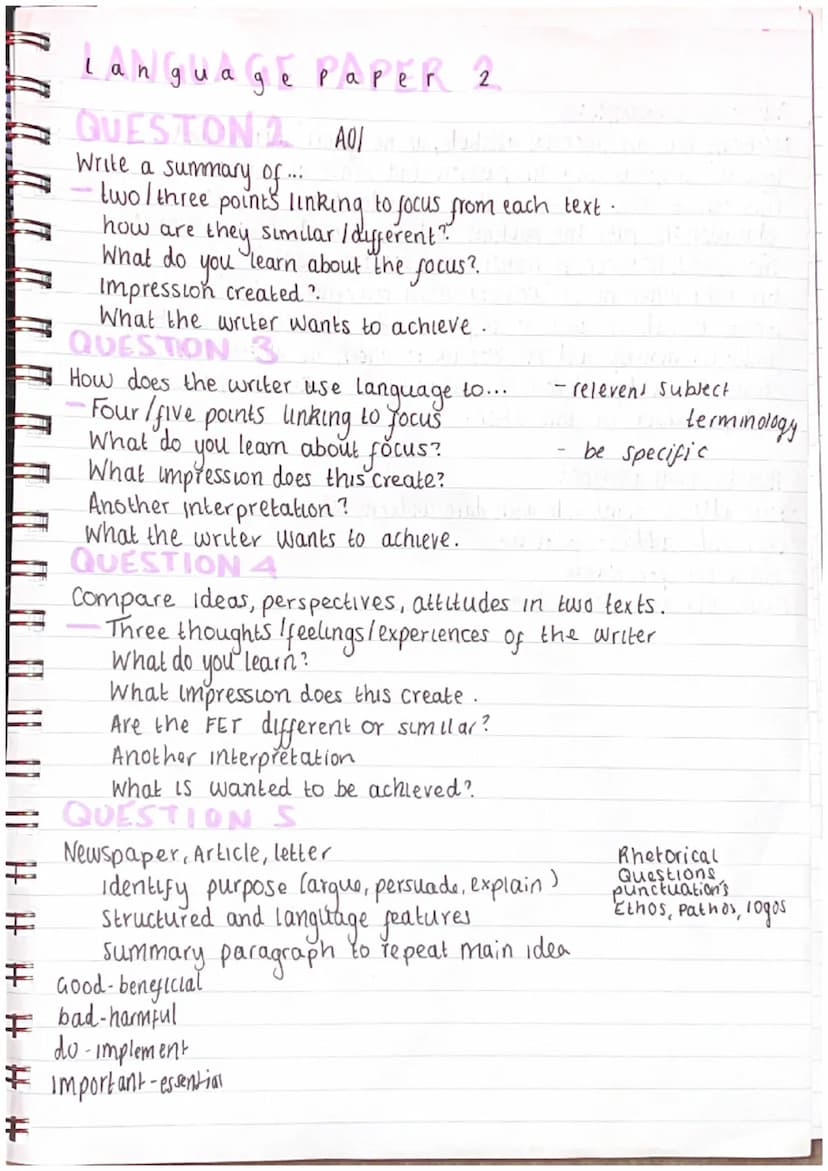 Language Paper 2
QUESTON 2 A01
Write a summary of...
- two/three points linking to focus from each text.
how are they similar/different?
What do you learn about the focus?
Impression created?
What the writer wants to achieve.
QUESTION 3
How does the writer use language to... - relevent subject
terminology
- Four/five points linking to focus
What do you learn about focus? - be specific
What impression does this create?
Another interpretation?
What the writer wants to achieve.
QUESTION 4
Compare ideas, perspectives, attitudes in two texts.
- Three thoughts/feelings/experiences of the writer
What do you learn?
What impression does this create.
Are the FET different or similar?
Another interpretation
What is wanted to be achieved?
QUESTION 5
Newspaper, Article, letter
identify purpose (argue, persuade, explain)
Structured and language features
Summary paragraph to repeat main idea
Rhetorical
Questions
punctuation's
Ethos, pathos, logos
Good-beneficial
bad-harmful
do-implement
important-essential